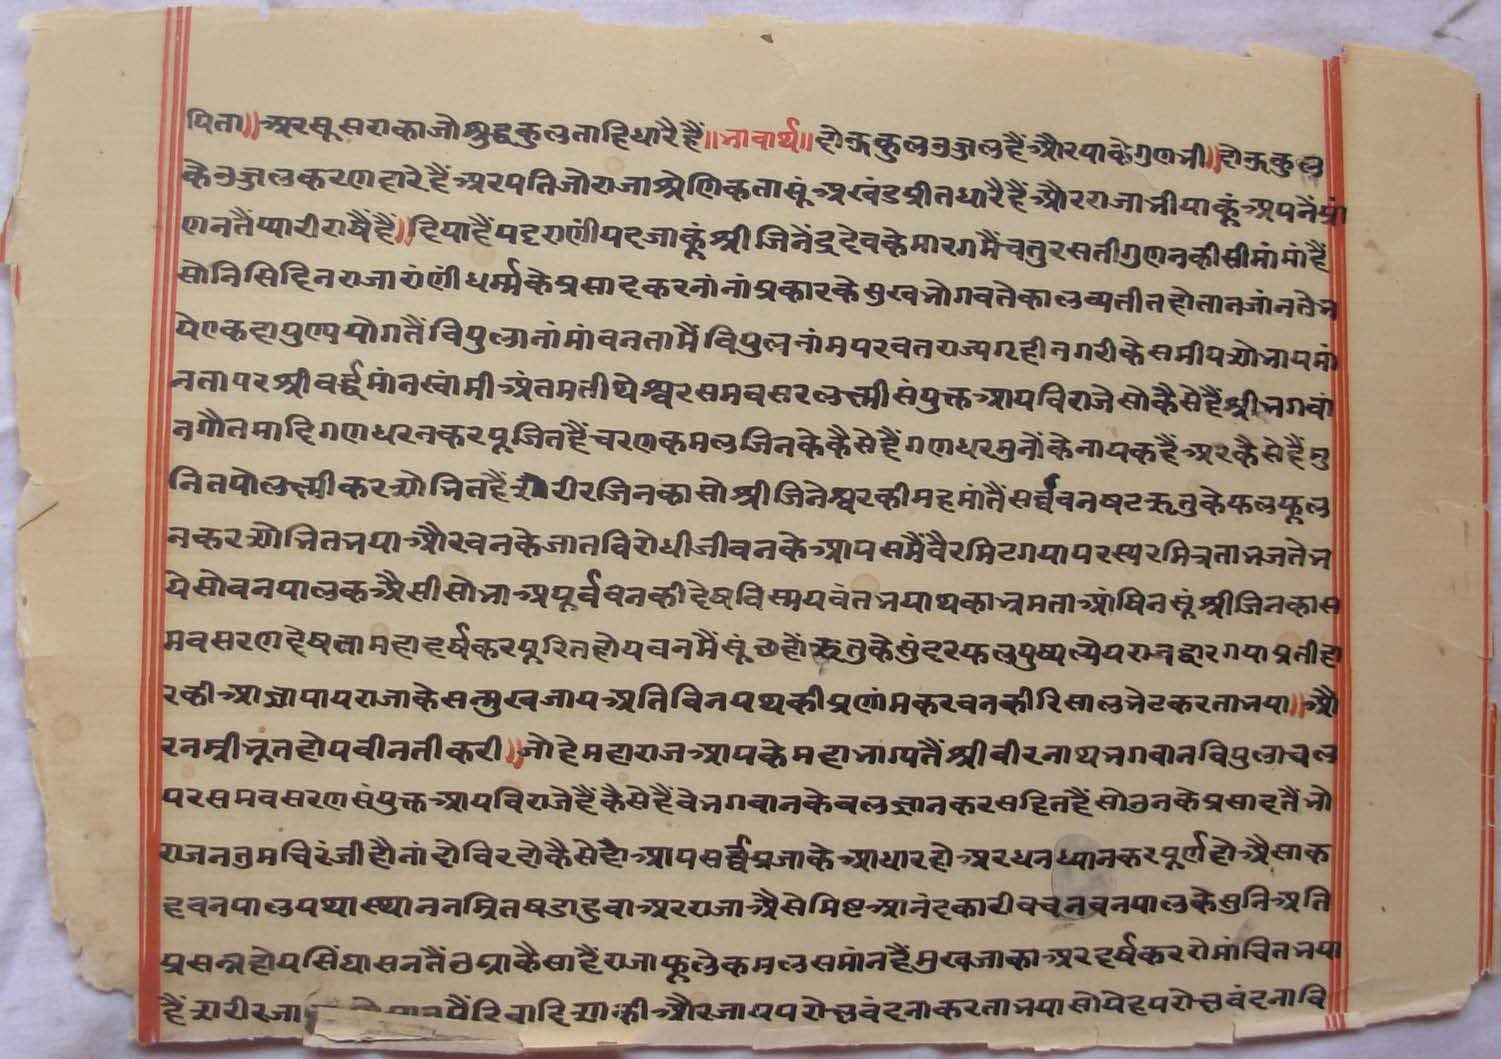 पिता॥अरसूसराकाजोशुद्धकुलताहिधारैहैं॥भावार्थ॥दोऊकुलउज्जलहैंऔरपाकेगुणभी॥दोऊकुल
केउज्जलकरणहारेहैंअरपतिजोराजाश्रेणिकतासूंअखंडप्रीतधारैहैंऔरराजाभीयाकूंअपनेंप्रां
णनतैंप्यारीराषैंहैं॥दियाहैंपट्टराणींपदजाकूंश्रीजिनेंद्रदेवकेमारगमैंचतुरसतीगुणनकीसीमांमांहैं
सोनिसिदिनराजारांणींधर्म्मकेप्रसादकरनांनांप्रकारकेसुखभोगवतेकालव्यतीतहोतानजांनतेभ
येएकदापुण्ययोगतैंविपुलानांमांवनतामैंविपुलनांमपरवतराज्यगृहीनगरीकेसमीपशोभायमां
नतापरश्रीवर्द्धमांनस्वांमीअंतमतीर्थेश्वरसमवसरलक्ष्मीसंयुक्तआयविराजेसोकैसेहैंश्रीभगवां
नगौतमादिगणधरनकरपूजितहैंचरणकमलजिनकेकैसेहैंगणधरमुनोंकेनायकहैंअरकैसेहैंमु
नितपोलक्ष्मीकरशोभितहैंशरीरजिनकासोश्रीजिनेश्वरकीमहमांतैंसर्व्ववनषटऋतुकेफलफूल
नकरशोभितभयाऔरवनकेजातविरोधीजीवनकेआपसमैंवैरमिटगयापरस्परमित्रताभजतेभ
येसोवनपालकअैसीसोभाअपूर्ववनकीदेषविस्मयवंतभयाथकाभ्रमताआंषिनसूंश्रीजिनकास
मवसरणदेषतामहाहर्षकरपूरितहोयवनमैंसूंछहोंऋतुकेसुंदरफलपुष्पल्येयराजद्वारगयाप्रतीहा
रकीआज्ञापायराजाकेसन्मुखजायअतिविनयथकीप्रणांमकरवनकीरिसालभेटकरताभया॥औ
रनम्रीभूतहोयवीनतीकरी॥भोहेमहाराजआपकेमहाभाग्यतैंश्रीवीरनाथभगवानविपुलाचल
परसमवसरणसंयुक्तआयविराजेहैंकैसेहैंवेभगवानकेवलज्ञानकरसहितहैंसोउनकेप्रसादतैंभो
राजनतुमचिरंजीहौनांदोविरदोकैसेहोआपसर्व्वप्रजाकेआधारहोअरधनध्यानकरपूर्णहोअैसाक
हवनपालयथास्थाननम्रितषडाहुवाअरराजाअैसेमिष्टआनंदकारीवचनवनपालकेसुनिअति
प्रसन्नहोयसिंघासनतैंउठाकैसाहैंराजाफूलेकमलसमांनहैंमुखजाकाअरहर्षकररोमांचितभया
हैंशरीरजा औरजायपरोक्षवंदनाकरताभयासोयेहपरोक्षवंदनावि